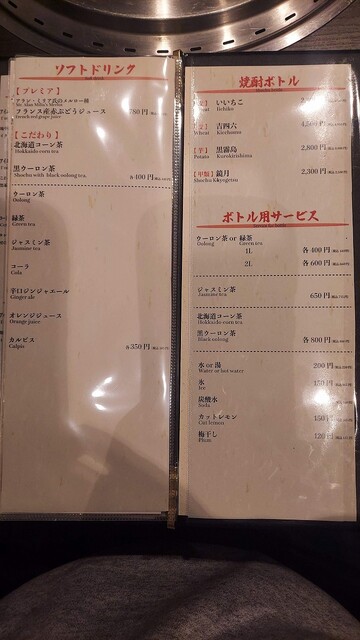 ソフトドリンク
【プレミア】
アラン・ミリア氏のメルロー種
フランス産赤ぶどうジュース 780円
French red grape juice
【こだわり】
北海道コーン茶
Hokkaido corn tea
黒ウーロン茶 各400円
Shochu with black oolong tea
ウーロン茶
Oolong
緑茶
Green tea
ジャスミン茶
Jasmine tea
コーラ
Cola
辛口ジンジャエール
Ginger ale
オレンジジュース
Orange juice
カルピス 各350円
Calpis
焼酎ボトル
いいちこ
Iichiko
吉四六
Wheat Kicchomu
【芋】 黒霧島 2,800円
Potato Kurokirishima
【甲類】 鏡月 2,300円
Shochu Kkyogetsu
ボトル用サービス
ウーロン茶 or 緑茶
Oolong Green tea
1L 各400円
2L 各600円
ジャスミン茶 650円
Jasmine tea
北海道コーン茶
Hokkaido corn tea
黒ウーロン茶 各800円
Black oolong
水 or 湯 200円
Water or hot water
氷
Ice
炭酸水
Soda
カットレモン 150円
Cut lemon
梅干し 120円
Plum